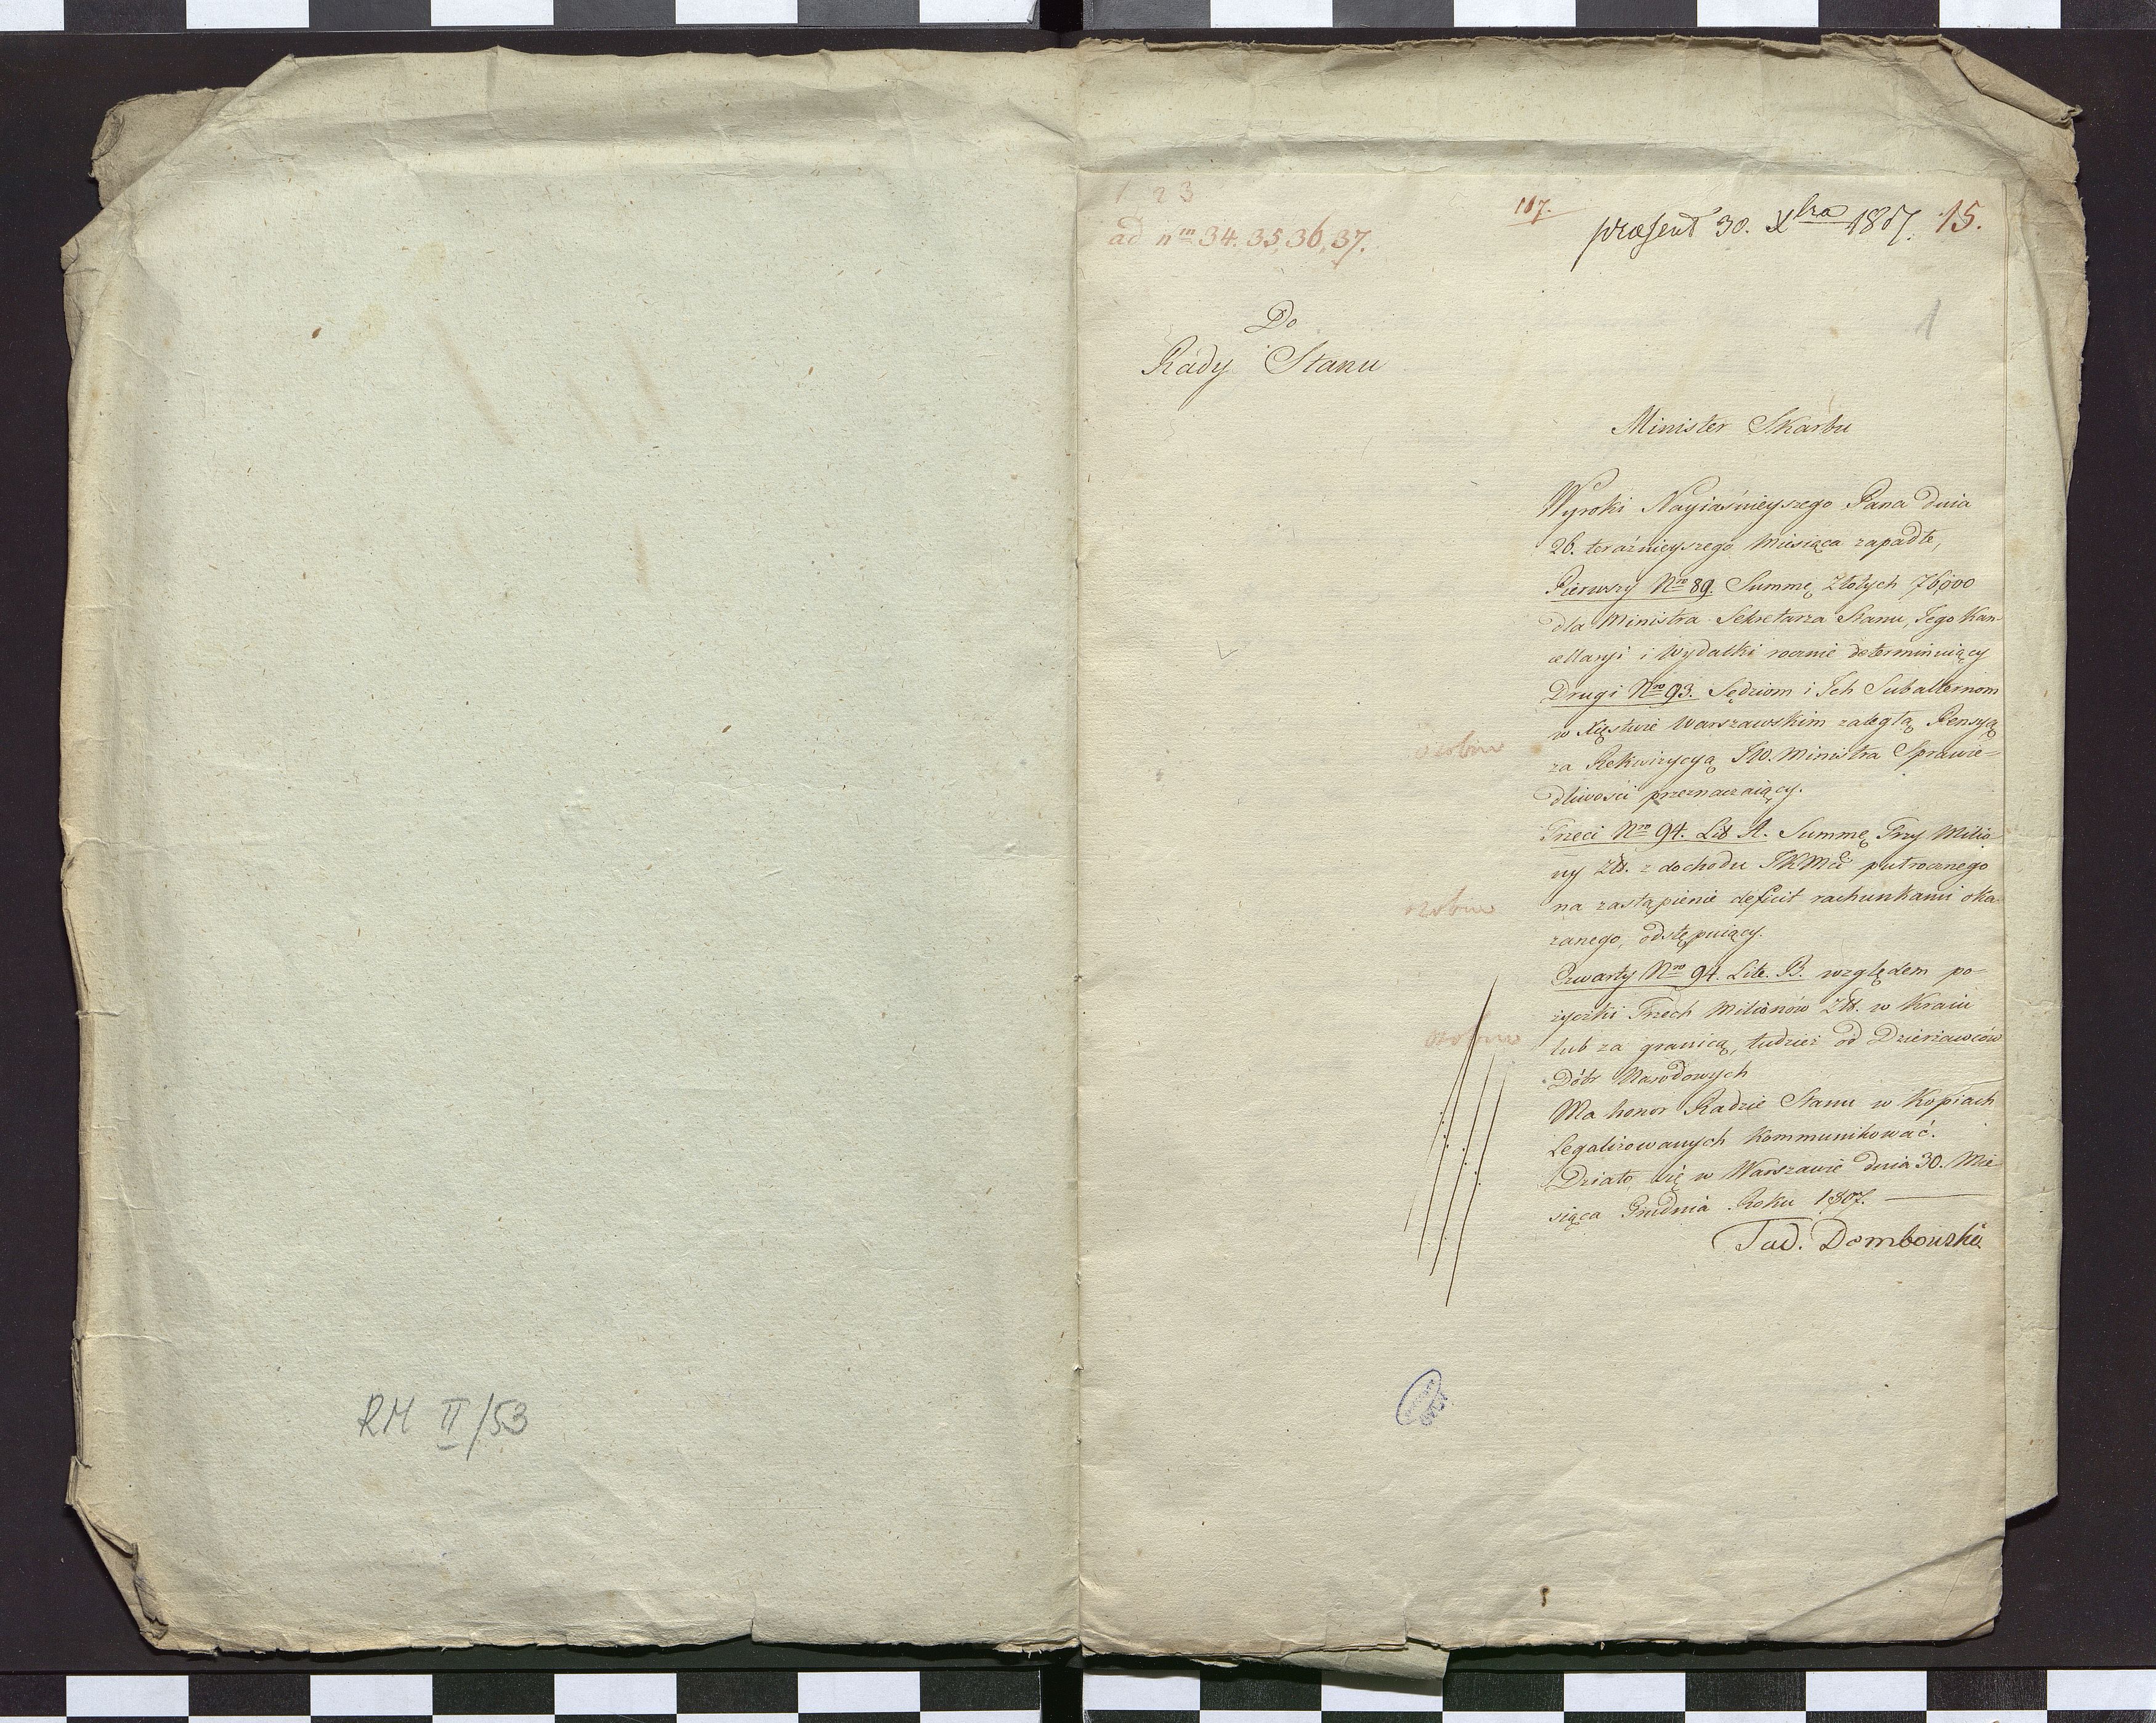 RM II/53
1 2 3
ad nm 34. 35, 36, 37.
117.
præsent 30. Xbra 1807. 15.
1
Do
Rady Stanu
Minister Skarbu
Wyroki Nayiaśnieyszego Pana dnia
26. teraźnieyszego Miesiąca zapadłe,
Pierwszy Nro 89. Summę Złotych 76,000
dla Ministra Sekretarza Stanu, Jego Kan-
cellaryi i Wydatki rocznie determinuiący
Drugi Nro 93. Sędziom i Ich Subalternom
w Xięstwie Warszawskim zaległą Pensyą
za Rekwizycyą JW. Ministra Sprawie-
dliwości przeznaczaiący.
Trzeci Nro 94. Lit A. Summę Trzy Milio-
ny Złł. z dochodu JKMci półrocznego
na zastąpienie deficit rachunkami oka-
zanego, odstępuiący.
Czwarty Nro 94. Lit. B. względem po-
życzki Trzech Milionów Złł. w Kraiu
lub za granicą, tudzież od Dzierżawców
Dóbr Narodowych
Ma honor Radzie Stanu w Kopiach
Legalizowanych Kommunikować.
Działo się w Warszawie dnia 30. Mie-
siąca Grudnia Roku 1807.
Tad. Dembowski